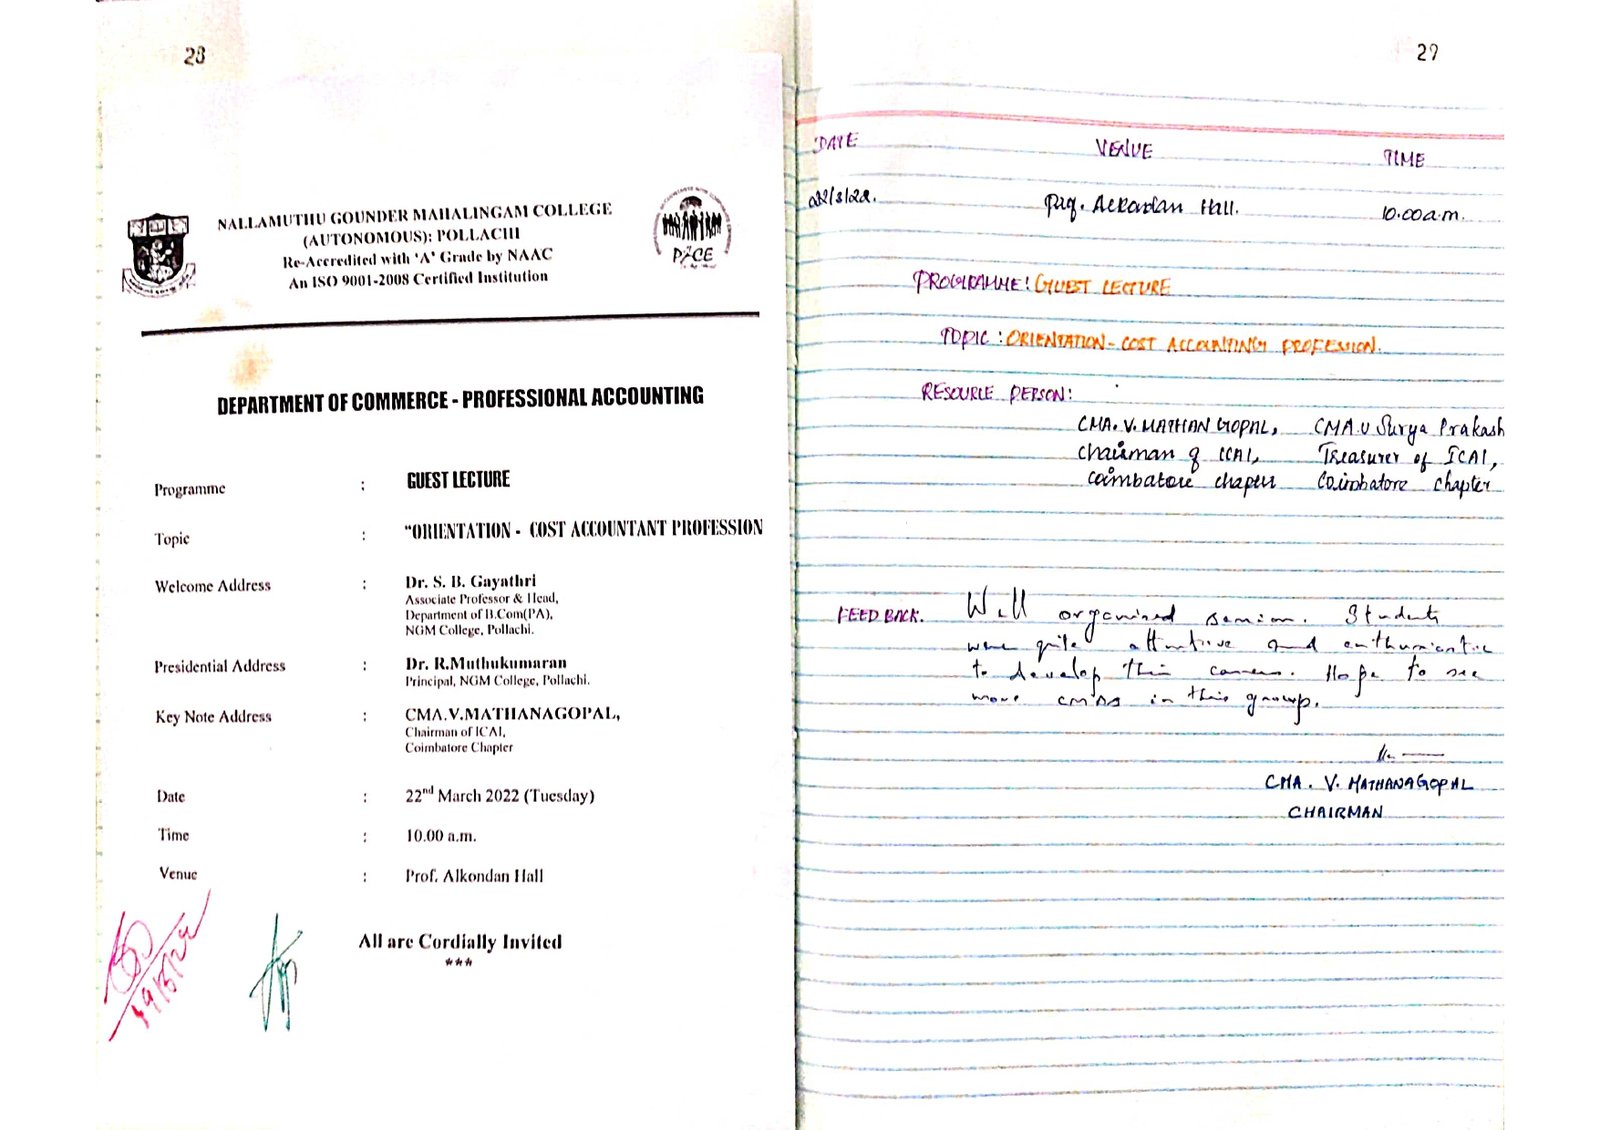 28
NALLAMUTHU GOUNDER MAHALINGAM COLLEGE
(AUTONOMOUS): POLLACHI
Re-Accredited with 'A' Grade by NAAC
An ISO 9001-2008 Certified Institution
PACE
DEPARTMENT OF COMMERCE - PROFESSIONAL ACCOUNTING
Programme : GUEST LECTURE
Topic : "ORIENTATION - COST ACCOUNTANT PROFESSION
Welcome Address : Dr. S. B. Gayathri
Associate Professor & Head,
Department of B.Com(PA),
NGM College, Pollachi.
Presidential Address : Dr. R.Muthukumaran
Principal, NGM College, Pollachi.
Key Note Address : CMA.V.MATHANAGOPAL,
Chairman of ICAI,
Coimbatore Chapter
Date : 22nd March 2022 (Tuesday)
Time : 10.00 a.m.
Venue : Prof. Alkondan Hall
All are Cordially Invited
***
19/3/22
29
DATE VENUE TIME
22/3/22. Hall. 10.00a.m.
PROGRAMME: GUEST LECTURE
TOPIC : ORIENTATION - COST ACCOUNTING PROFESSION.
RESOURCE PERSON:
CMA. V. MATHAN GOPAL, CMA.U Surya Prakash
Chairman of ICAI, Treasurer of ICAI,
Coimbatore chapter Coimbatore chapter
FEED BACK. Well organised session. Students
were quite attentive and enthusiastic
to develop their careers. Hope to see
more CMAs in this group.
CMA. V. MATHANAGOPAL
CHAIRMAN